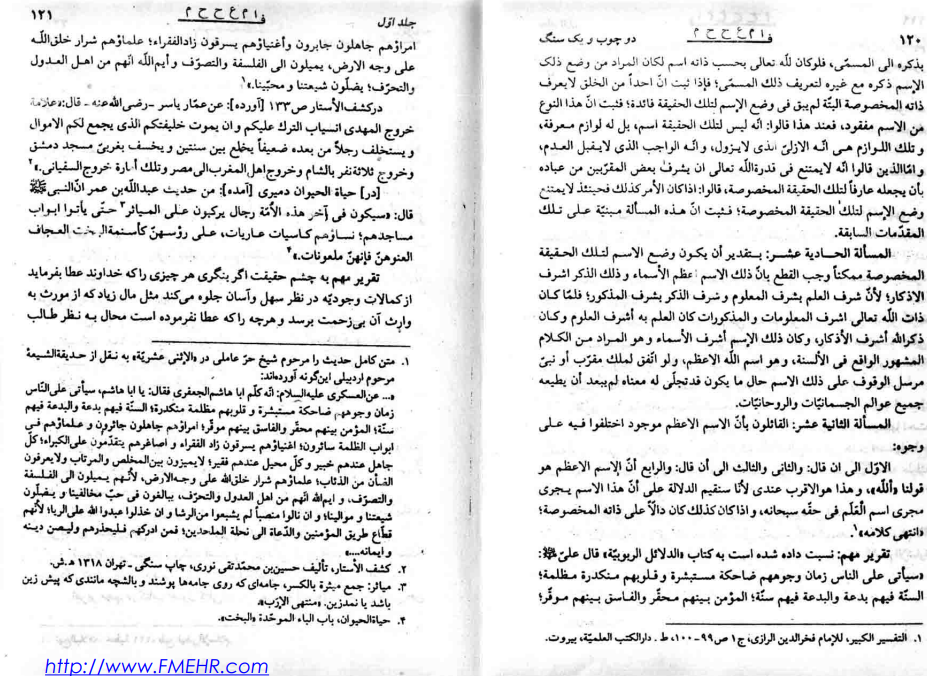 ۱۲۰
دو چوب و یک سنگ
بذکره الی المسمّی، فلوکان للّه تعالی بحسب ذاته اسم لکان المراد من وضع ذلک
الإسم ذکره مع غیره لتعریف ذلک المسمّی؛ فإذا ثبت انّ احداً من الخلق لایعرف
ذاته المخصوصة البتّة لم یبق فی وضع الإسم لتلک الحقیقة فائدة؛ فثبت انّ هذا النوع
من الاسم مفقود، فعند هذا قالوا: انّه لیس لتلک الحقیقة اسم، بل له لوازم معرفة،
و تلک اللـوازم هـی انّـه الازلیّ الذی لایـزول، و انّـه الواجب الذی لایـقبل العـدم،
و امّاالذین قالوا انّه لایمتنع فی قدرةاللّه تعالی ان یشرف بعض المقرّبین من عباده
بأن یجعله عارفاً لتلک الحقیقة المخصوصة، قالوا: اذاکان الأمرکذلک فحینئذ لایمتنع
وضع الإسم لتلک الحقیقة المخصوصة؛ فـثبت انّ هـذه المسألة مـبنیّة عـلی تـلک
المقدّمات السابقة.
المسألة الحـادیة عشـر: بـتقدیر أن یکـون وضع الاسـم لتـلک الحـقیقة
المخصوصة ممکناً وجب القطع بانّ ذلک الاسم اعظم الأسماء و ذلک الذکر اشرف
الاذکار؛ لأنّ شرف العلم بشرف المعلوم و شرف الذکر بشرف المذکور؛ فلمّا کـان
ذات اللّه تعالی اشرف المعلومات و المذکورات کان العلم به أشرف العلوم و کـان
ذکراللّه أشرف الأذکار، وکان ذلک الإسم أشرف الأسماء و هو المـراد مـن الکـلام
المشهور الواقع فی الألسنة، و هو اسم اللّه الاعظم، و لو اتّفق لملک مقرّب أو نبیّ
مرسل الوقوف علی ذلک الاسم حال ما یکون قدتجلّی له معناه لم‌یبعد أن یطیعه
جمیع عوالم الجسمانیّات و الروحانیّات.
المسألة الثانیة عشر: القائلون بأنّ الاسم الاعظم موجود اختلفوا فیـه عـلی
وجوه:
الاوّل الی ان قال: والثانی والثالث الی أن قال: والرابع أنّ الإسم الاعظم هو
قولنا «اللّٰه»، و هذا هوالاقرب عندی لأنّا سنقیم الدلالة علی أنّ هذا الاسم یـجری
مجری اسم العَلَم فی حقّه سبحانه، و اذاکان کذلک کان دالّاً علی ذاته المخصوصة؛
«انتهی کلامه»۱.
تقریر مهم: نسبت داده شده است به کتاب «الدلائل الربوبیّة» قال علیّ:
«سیأتی علی الناس زمان وجوههم ضاحکة مستبشرة و قـلوبهم مـنکدرة مـظلمة؛
السنّة فیهم بدعة والبدعة فیهم سنّة؛ المؤمن بـینهم محقّر والفـاسق بـینهم موقّر؛
۱. التفسیر الکبیر، للإمام فخرالدین الرازی، ج۱ ص۹۹-۱۰۰، ط. دارالکتب العلمیّة، بیروت.
جلد اوّل
۱۲۱
امراؤهم جاهلون جابرون وأغنیاؤهم یسرقون زادالفقراء؛ علماؤهم شرار خلق‌اللّه
علی وجه الارض، یمیلون الی الفلسفة والتصوّف و أیم‌اللّه انّهم من اهـل العـدول
والتحرّف؛ یضلّون شیعتنا و محبّینا.»۱
درکشف‌الأستار ص۱۳۳ [آورده]: عن‌عمّار یاسر -رضی‌الله‌عنه- قال: «علامة
خروج المهدی انسیاب الترك علیکم و ان یموت خلیفتکم الذی یجمع لکم الاموال
و یستخلف رجلاً من بعده ضعیفاً یخلع بین سنتین و یخسف بغربی مسجد دمشق
وخروج ثلاثةنفر بالشام و خروج‌اهل المغرب‌الی‌مصر وتلك أمارة خروج‌السفیانی.»۲
[در] حیاة الحیوان دمیری [آمده]: من حدیث عبداللّه‌بن عمر انّ‌النبـی
قال: «سیکون فی آخر هذه الأمّة رجال یرکبون عـلی المـیاثر۳ حتّی یأتـوا ابـواب
مساجدهم؛ نسـاؤهم کـاسیات عـاریات، عـلی رؤسـهنّ کأسـنمةالبخت العـجاف
العنوهنّ فإنهنّ ملعونات.»۴
تقریر مهم به چشم حقیقت اگر بنگری هر چیزی را که خداوند عطا بفرماید
از کمالات وجودیّه در نظر سهل و آسان جلوه می‌کند مثل مال زیاد که از مورث به
وارث آن بی‌زحمت برسد و هرچه را که عطا نفرموده است محال بـه نـظر طـالب
۱. متن کامل حدیث را مرحوم شیخ حرّ عاملی در «الإثنی عشریّة» به نـقل از حـدیقةالشیـعهٔ
مرحوم اردبیلی این‌گونه آورده‌اند:
«... عن‌العسکری علیه‌السلام: انّه کلّم ابا هاشم‌الجعفری فقال: یا ابا هاشم، سیأتی علی‌النّاس
زمان وجوههم ضاحکة مستبشرة و قلوبهم مظلمة منکدرة؛ السنّة فیهم بدعة والبدعة فیهم
سنّة؛ المؤمن بینهم محقّر والفاسق بینهم موقّر؛ امراؤهم جاهلون جائرون و عـلماؤهم فـی
ابواب الظلمة سائرون؛ اغنیاؤهم یسرقون زاد الفقراء و اصاغرهم یتقدّمون علی‌الکبراء؛ کلّ
جاهل عندهم خبیر و کلّ محیل عندهم فقیر؛ لایمیزون بین‌المخلص والمرتاب ولایعرفون
الضأن من الذئاب؛ علماؤهم شرار خلق‌الله علی وجه‌الارض، لأنّـهم یـمیلون الی الفـلسفة
والتصوّف، و ایم‌الله انّهم من اهل العدول والتحرّف، یبالغون فی حبّ مخالفینا و یـضلّون
شیعتنا و موالینا؛ و ان نالوا منصباً لم یشبعوا من‌الرشا و ان خذلوا عبدوا الله علی‌الریا؛ لأنّهم
قطّاع طریق المؤمنین والدّعاة الی نحلة الملحدین؛ فمن ادرکهم فـلیحذرهم ولیـصن دیـنه
و ایمانه....»
۲. کشف الأستار، تألیف حسین‌بن محمدتقی نوری، چاپ سنگی - تهران ۱۳۱۸ هـ.ش.
۳. میاثر: جمع میثرة بالکسر، جامه‌ای که روی جامه‌ها پوشند و بالشچه مانندی که پیش زین
باشد یا نمدزین. «منتهی الإرَب».
۴. حیاةالحیوان، باب الباء الموحّدة «البخت».
http://www.FMEHR.com